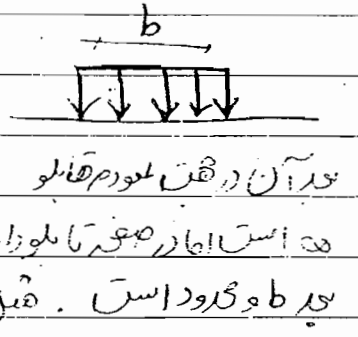 b
بعد آن در جهت عمود بر تابلو
است اما در صفحه تابلو دارا
بعد b و محدود است .